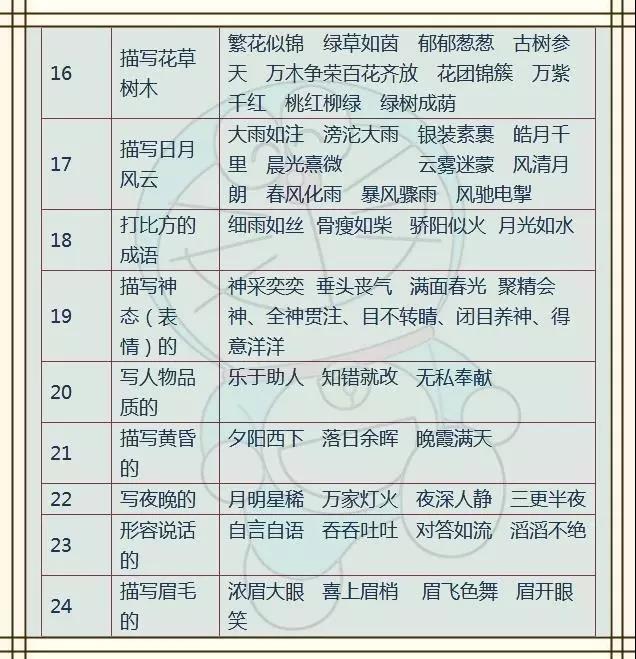 繁花似锦 绿草如茵 郁郁葱葱 古树参
16 描写花草 天 万木争荣百花齐放 花团锦簇 万紫
树木 千红 桃红柳绿 绿树成荫
大雨如注 滂沱大雨 银装素裹 皓月千
17 描写日月 里 晨光熹微 云雾迷蒙 风清月
风云 朗 春风化雨 暴风骤雨 风驰电掣
18 打比方的 细雨如丝 骨瘦如柴 骄阳似火 月光如水
成语
描写神 神采奕奕 垂头丧气 满面春光 聚精会
19 态（表 神、全神贯注、目不转睛、闭目养神、得
情）的 意洋洋
20 写人物品 乐于助人 知错就改 无私奉献
质的
21 描写黄昏 夕阳西下 落日余晖 晚霞满天
的
22 写夜晚的 月明星稀 万家灯火 夜深人静 三更半夜
23 形容说话 自言自语 吞吞吐吐 对答如流 滔滔不绝
的
24 描写眉毛 浓眉大眼 喜上眉梢 眉飞色舞 眉开眼
的 笑